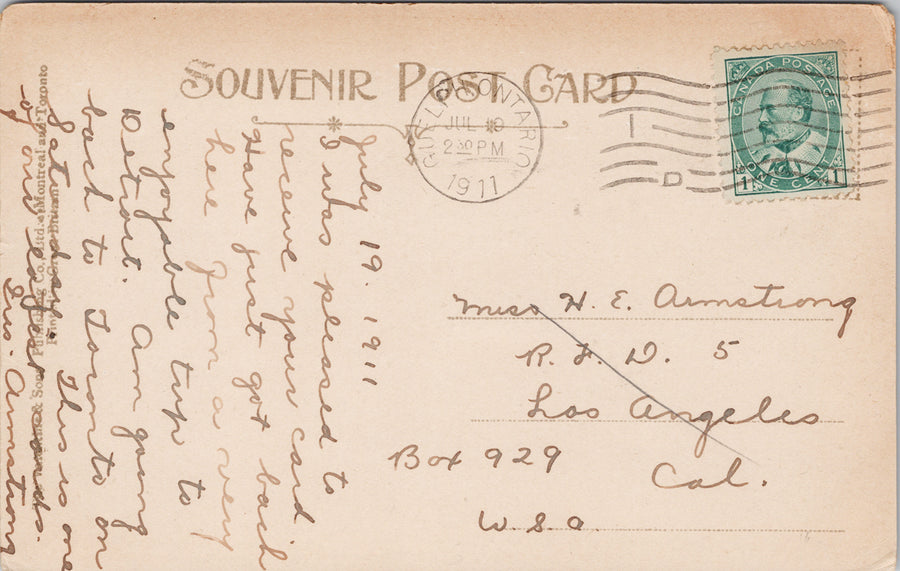 SOUVENIR POST CARD
GUELPH ONTARIO
JUL 19
2 30 PM
1911
I
D
CANADA POSTAGE
1 1
ONE CENT
July 19. 1911
I was pleased to
receive your card
Have just got back
here from a very
enjoyable trip to
Detroit. Am going
back to Toronto on
Saturday. This is one
of our cards.
Armstrong
Miss H. E. Armstrong
R. F. D. 5
Los Angeles
Box 929
Cal.
U.S.A.
& Sons Publishing Co., Ltd., Montreal and Toronto
Printed in Great Britain